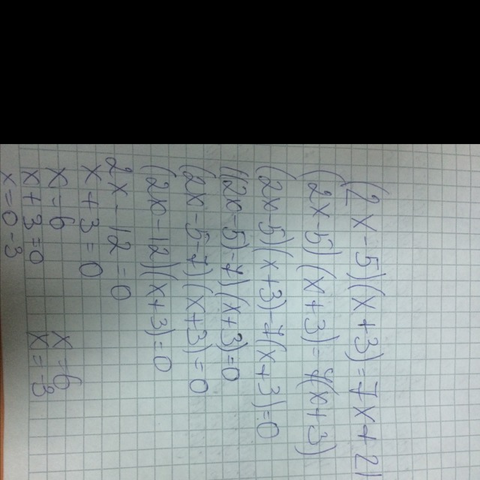 (2x-5)(x+3)=7x+21
(2x-5)(x+3)=7(x+3)
(2x-5)(x+3)-7(x+3)=0
((2x-5)-7)(x+3)=0
(2x-5-7)(x+3)=0
(2x-12)(x+3)=0
2x-12=0
x+3=0
x=6 x=6
x+3=0 x=-3
x=0-3